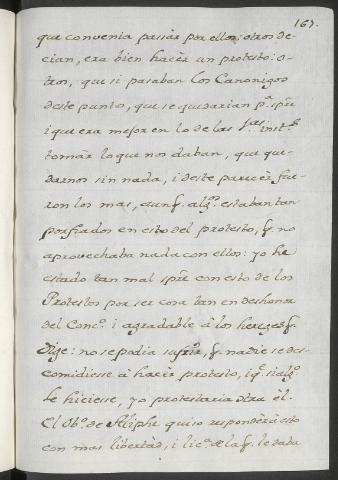 167.
que convenia pasàr por ellos: otros de-
cian, era bien hacèr un protesto: o-
tros, que si pasaban los Canonigos
deste punto, que se quedarian p.ª spr̃e
i que era mejor en lo de las 1.ªs inst.s
tomàr lo que nos daban, que que-
darnos sin nada, i deste parecèr fue-
ron los mas, aunq̃. alg.s estaban tan
porfiados en esto del protesto, q̃. no
aprovechaba nada con ellos: yo he
estado tan mal spr̃e con esto de los
Protestos por ser cosa tan en deshonor
del Conc.º i agradable à los hereges q̃.
dige: no se podia sufrir, q̃. nadie se des-
comidiese à hacèr protesto, i q.e si alg.º
le hiciese, yo protestaria c̃tra èl.
El Ob.º de Aliphe quiso respondèr à esto
con mas libertàd, i lic.ª de la q̃. le daba